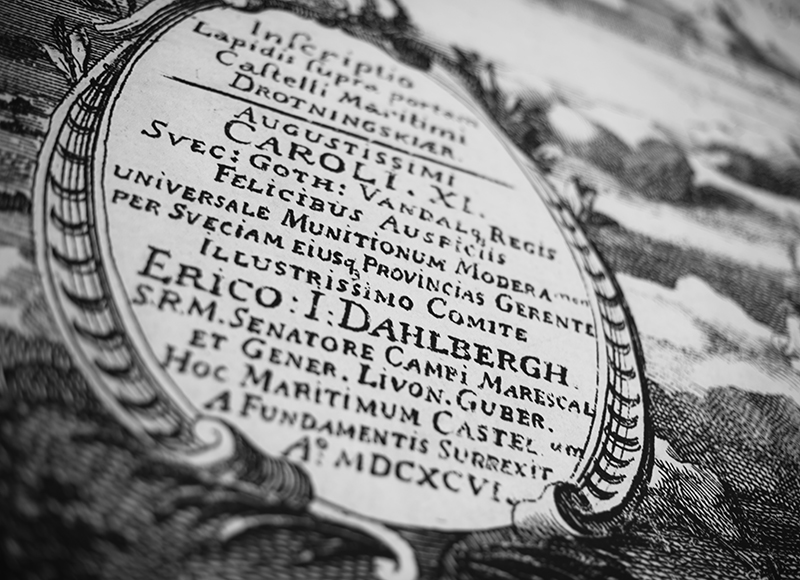 Inſcriptio
Lapidis ſupra portam
Caſtelli Maritimi
DROTNINGSKIÆR.
AUGUSTISSIMI
CAROLI. XI.
SVEC: GOTH: VANDALq3 REGIS
FELICIBUS AUSPICIIS
UNIVERSALE MUNITIONUM MODERAmen
PER SVECIAM EIUSq3 PROVINCIAS GERENTE
ILLUSTRISSIMO COMITE
ERICO: I: DAHLBERGH.
S.R.M. SENATORE CAMPI MARESCAL
ET GENER. LIVON. GUBER.
HOC MARITIMUM CASTELum
A FUNDAMENTIS SURREXIT
Aº MDCXCVI.